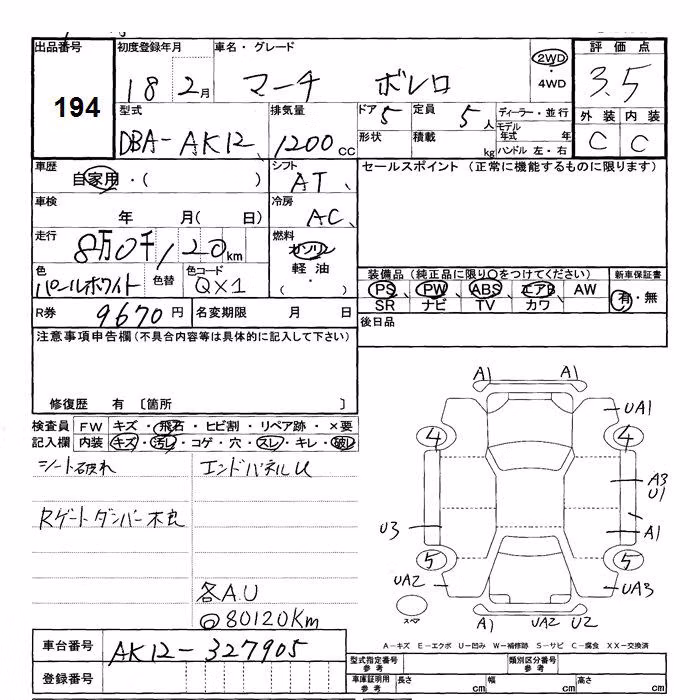 出品番号 初度登録年月 車名・グレード 評価点
194 18 2月 マーチ ボレロ 2WD ・ 4WD 3.5
型式 排気量 ドア 5 定員 5人 ディーラー・並行 外装 内装
DBA-AK12 1200cc 形状 積載 kg モデル年式 年 C C
ハンドル 左・右
車歴 シフト セールスポイント (正常に機能するものに限ります)
自家用・( ) AT
車検 冷房
年 月( 日) AC
走行 燃料
8万0千120km ガソリン
軽油
・( )
色 色替 色コード 装備品(純正品に限り○をつけてください) 新車保証書
パールホワイト QX1 PS PW ABS エアB AW 有・無
SR ナビ TV カワ
R券 9670円 名変期限 月 日 後日品
注意事項申告欄(不具合内容等は具体的に記入して下さい)
修復歴 有 〔箇所 〕
検査員 FW キズ・飛石・ヒビ割・リペア跡・×要
記入欄 内装 キズ・汚レ・コゲ・穴・スレ・キレ・破レ
シート破れ エンドパネルU
Rゲートダンパー不良
各A.U
@80120Km
A1 A1
UA1
4 4
A3
U1
U3 A1
5 5
UA2 UA3
スペア A1 UA2 U2
車台番号 AK12-327905
登録番号
A-キズ E-エクボ U-凹み W-補修跡 S-サビ C-腐食 XX-交換済
型式指定番号 参考 類別区分番号 参考
車庫証明用 参考 長さ cm 幅 cm 高さ cm